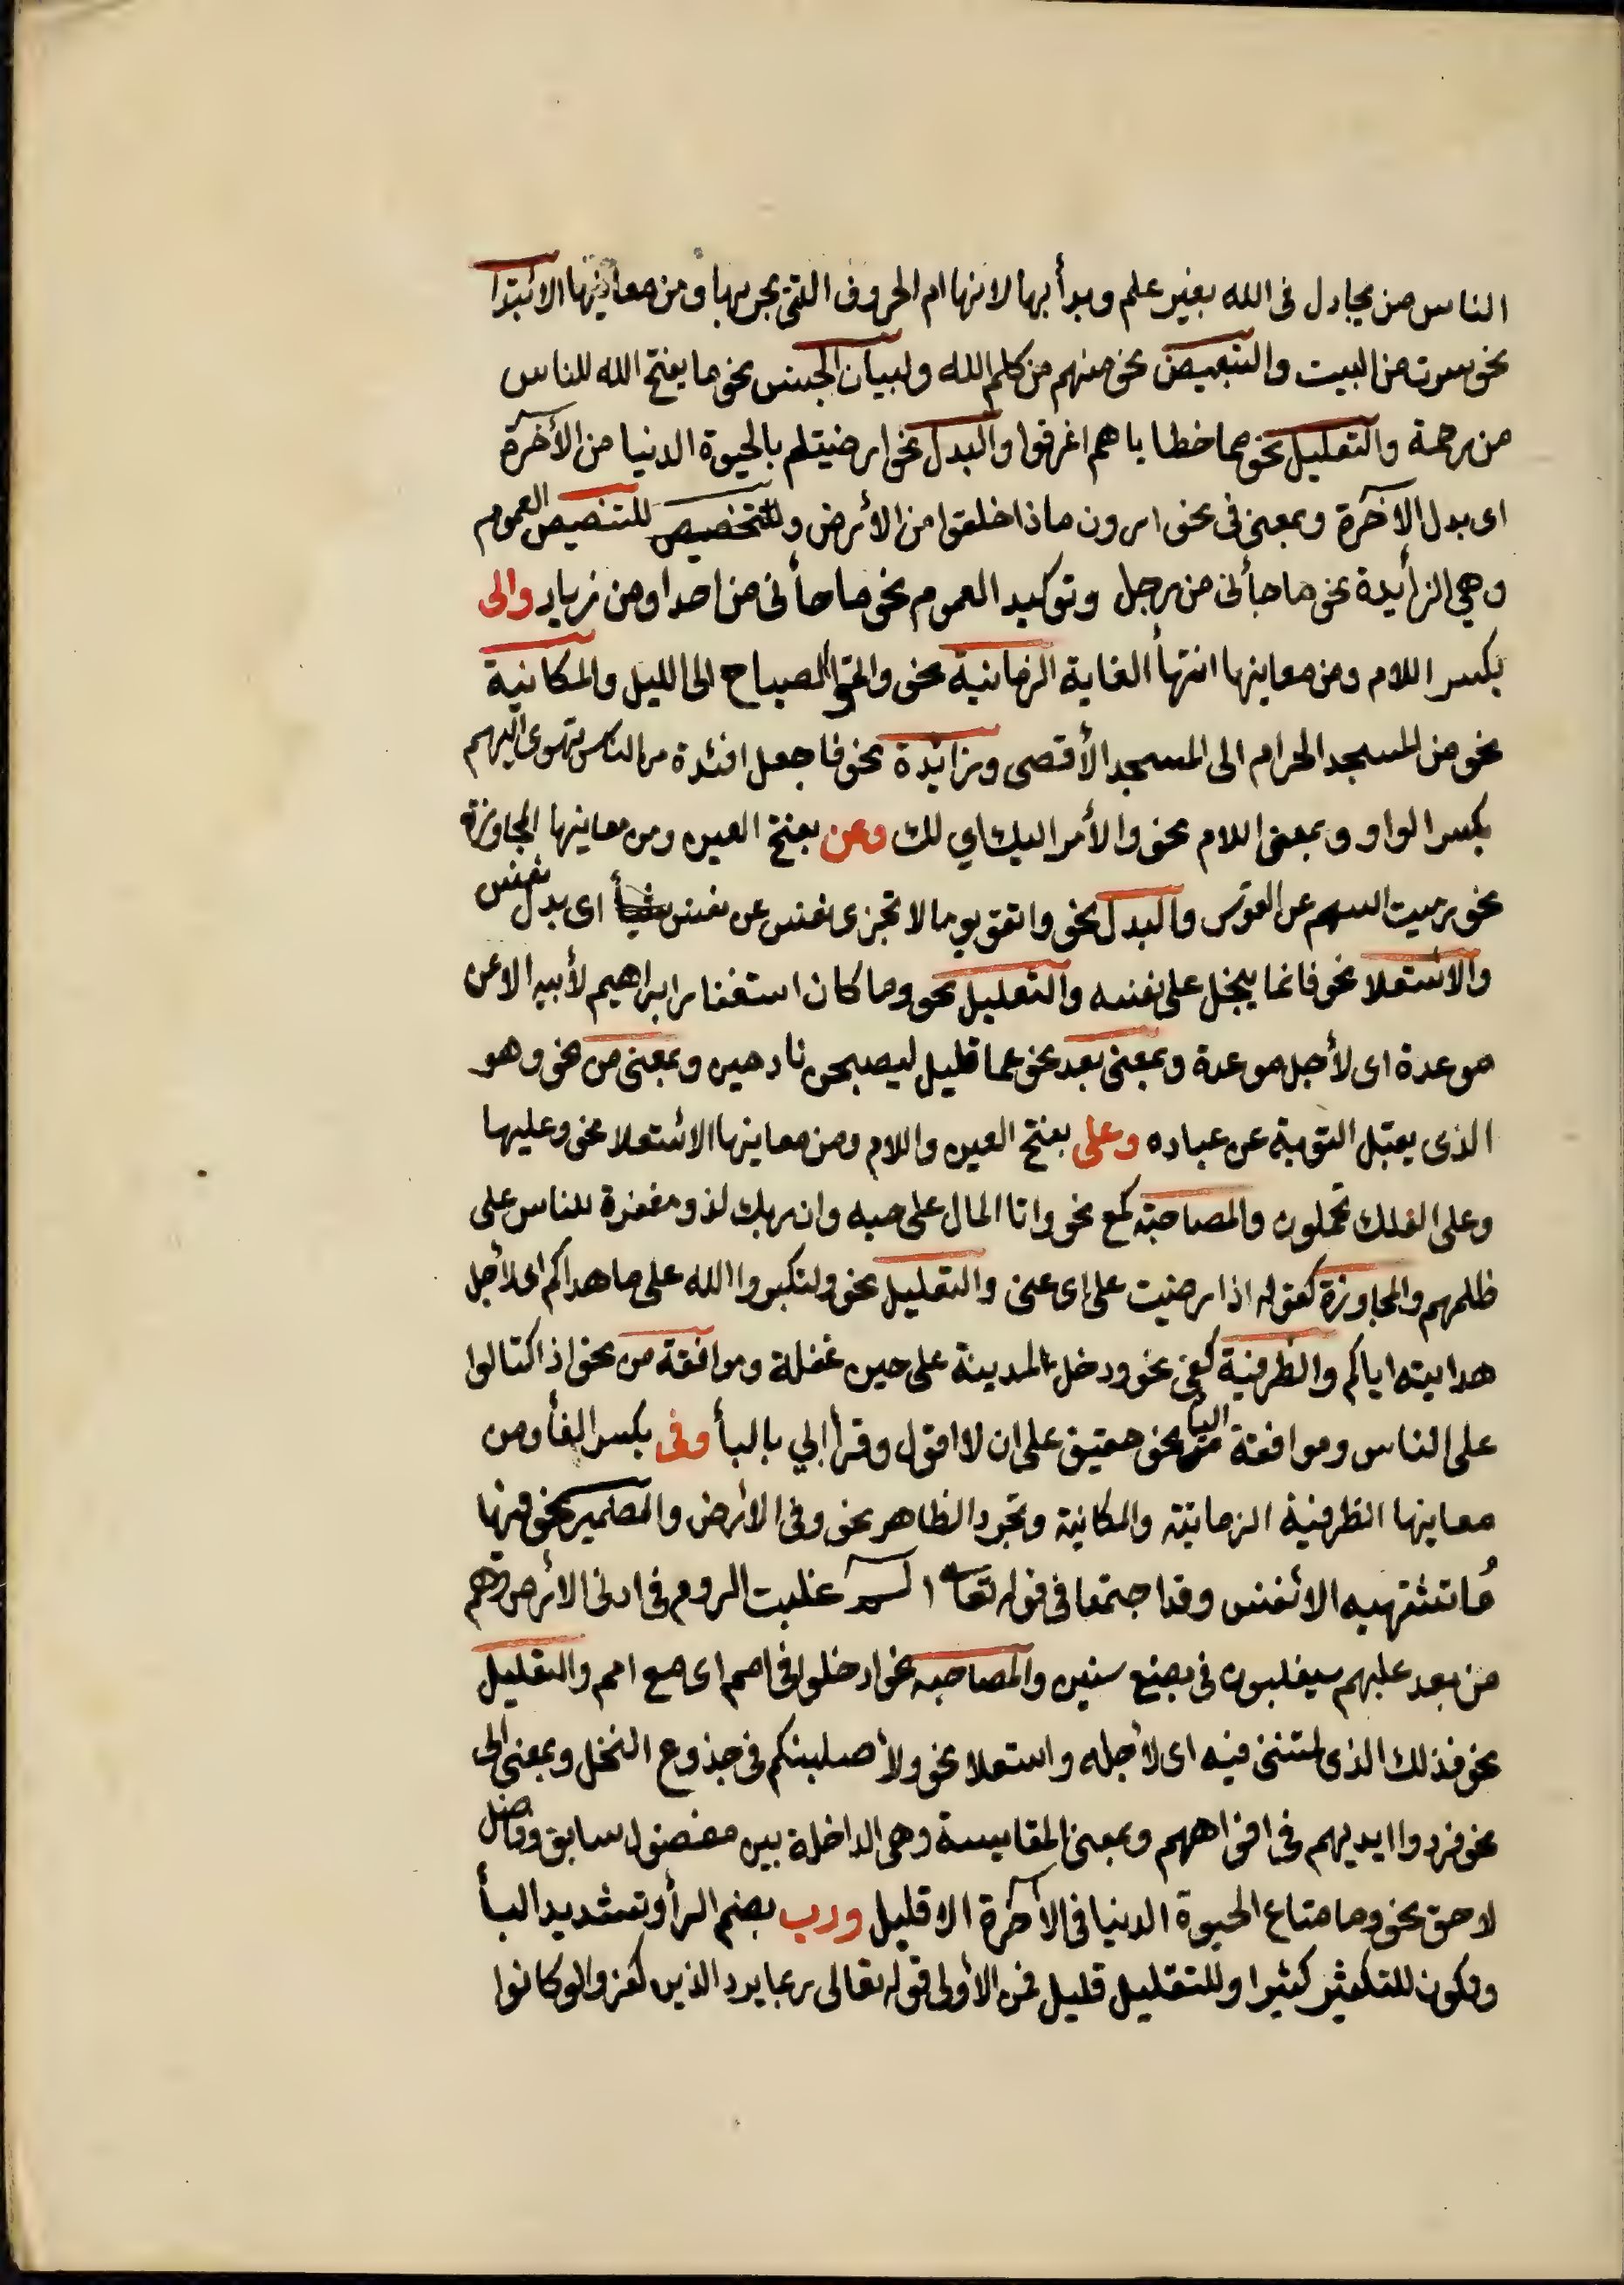 الناس من يجادل فى الله بغير علم وبدأ بها لانها ام الحروف التى يجر بها ومن معانيها الائبتدا
نحو سرت من البيت والتبعيض نحو منهم من كلم الله ولبيان الجنس نحو ما يفتح الله للناس
من رحمة والتعليل نحو مما خطاياهم اغرقوا والبدل نحو ارضيتم بالحيوة الدنيا من الأخرة
اى بدل الآخرة وبمعنى فى نحو ارونى ماذا خلقوا من الأرض وللتخصيص للتنصيص العموم
وهي الزائدة نحو ما جأنى من رجل وتوكيد العموم نحو ما جأنى من احد او من زيار والى
بكسر اللام ومن معاينها انتهأ الغاية الزمانية نحو واتموا الصباح الى الليل والمكانية
نحو من المسجد الحرام الى المسجد الأقصى وزائدة نحو فاجعل افئدة من الناس تهوى اليهم
بكسر الواو وبمعنى اللام نحو والأمر اليك اي لك وعن بفتح العين ومن معانيها المجاوزة
نحو رميت السهم عن القوس والبدل نحو واتقو يوما لا تجزى نفس عن نفس شيأ اى بدل نفس
والائستعلا نحو فانما يبخل على نفسه والتعليل نحو وما كان استغفار ابراهيم لأبيه الا عن
موعدة اى لأجل موعدة وبمعنى بعد نحو عما قليل ليصبحن نادمين وبمعنى من نحو وهو
الذى يقبل التوبة عن عباده وعلى بفتح العين واللام ومن معاينها الائستعلا نحو وعليها
وعلى الفلك تحملون والمصاحبة كمع نحو واتا المال على حبه وان ربك لذو مغفرة للناس على
ظلمهم والمجاوزة كقوله اذا رضيت على اى عنى والتعليل نحو ولتكبروا الله على ما هداكم اى لأجل
هدايته اياكم والظرفية كفى نحو ودخل المدينة على حين غفلة وموافقة من نحو اذا كتالوا
على الناس وموافقة البا نحو حقيق على ان لا اقول وقرأ ابي بالبأ وفى بكسر الفأ ومن
معاينها الظرفية الزمانية والمكانية وتجر الظاهر نحو وفى الائرض والمضمير نحو فيها
ما تشتهيه الائنفس وقد اجتمعا فى قوله تعا الم غلبت الروم فى ادنى الائرض وهم
من بعد غلبهم سيغلبون فى بضع سنين والمصاحبه نحو ادخلوا فى امم اى مع امم والتعليل
نحو فذلك الذى لمتننى فيه اى لأجله واستعلا نحو ولأصلبنكم فى جذوع النخل وبمعنى الى
نحو فردوا ايديهم فى افواههم وبمعنى المقايسة وهى الداخلة بين مفضول سابق وفاضل
لاحق نحو وما متاع الحيوة الدنيا فى الآخرة الا قليل ورب بضم الرأ وتشديد البأ
وتكون للتكثير كثيرا وللتقليل قليل فمن الأولى قوله تعالى ربما يرد الذين كفرو الو كانوا